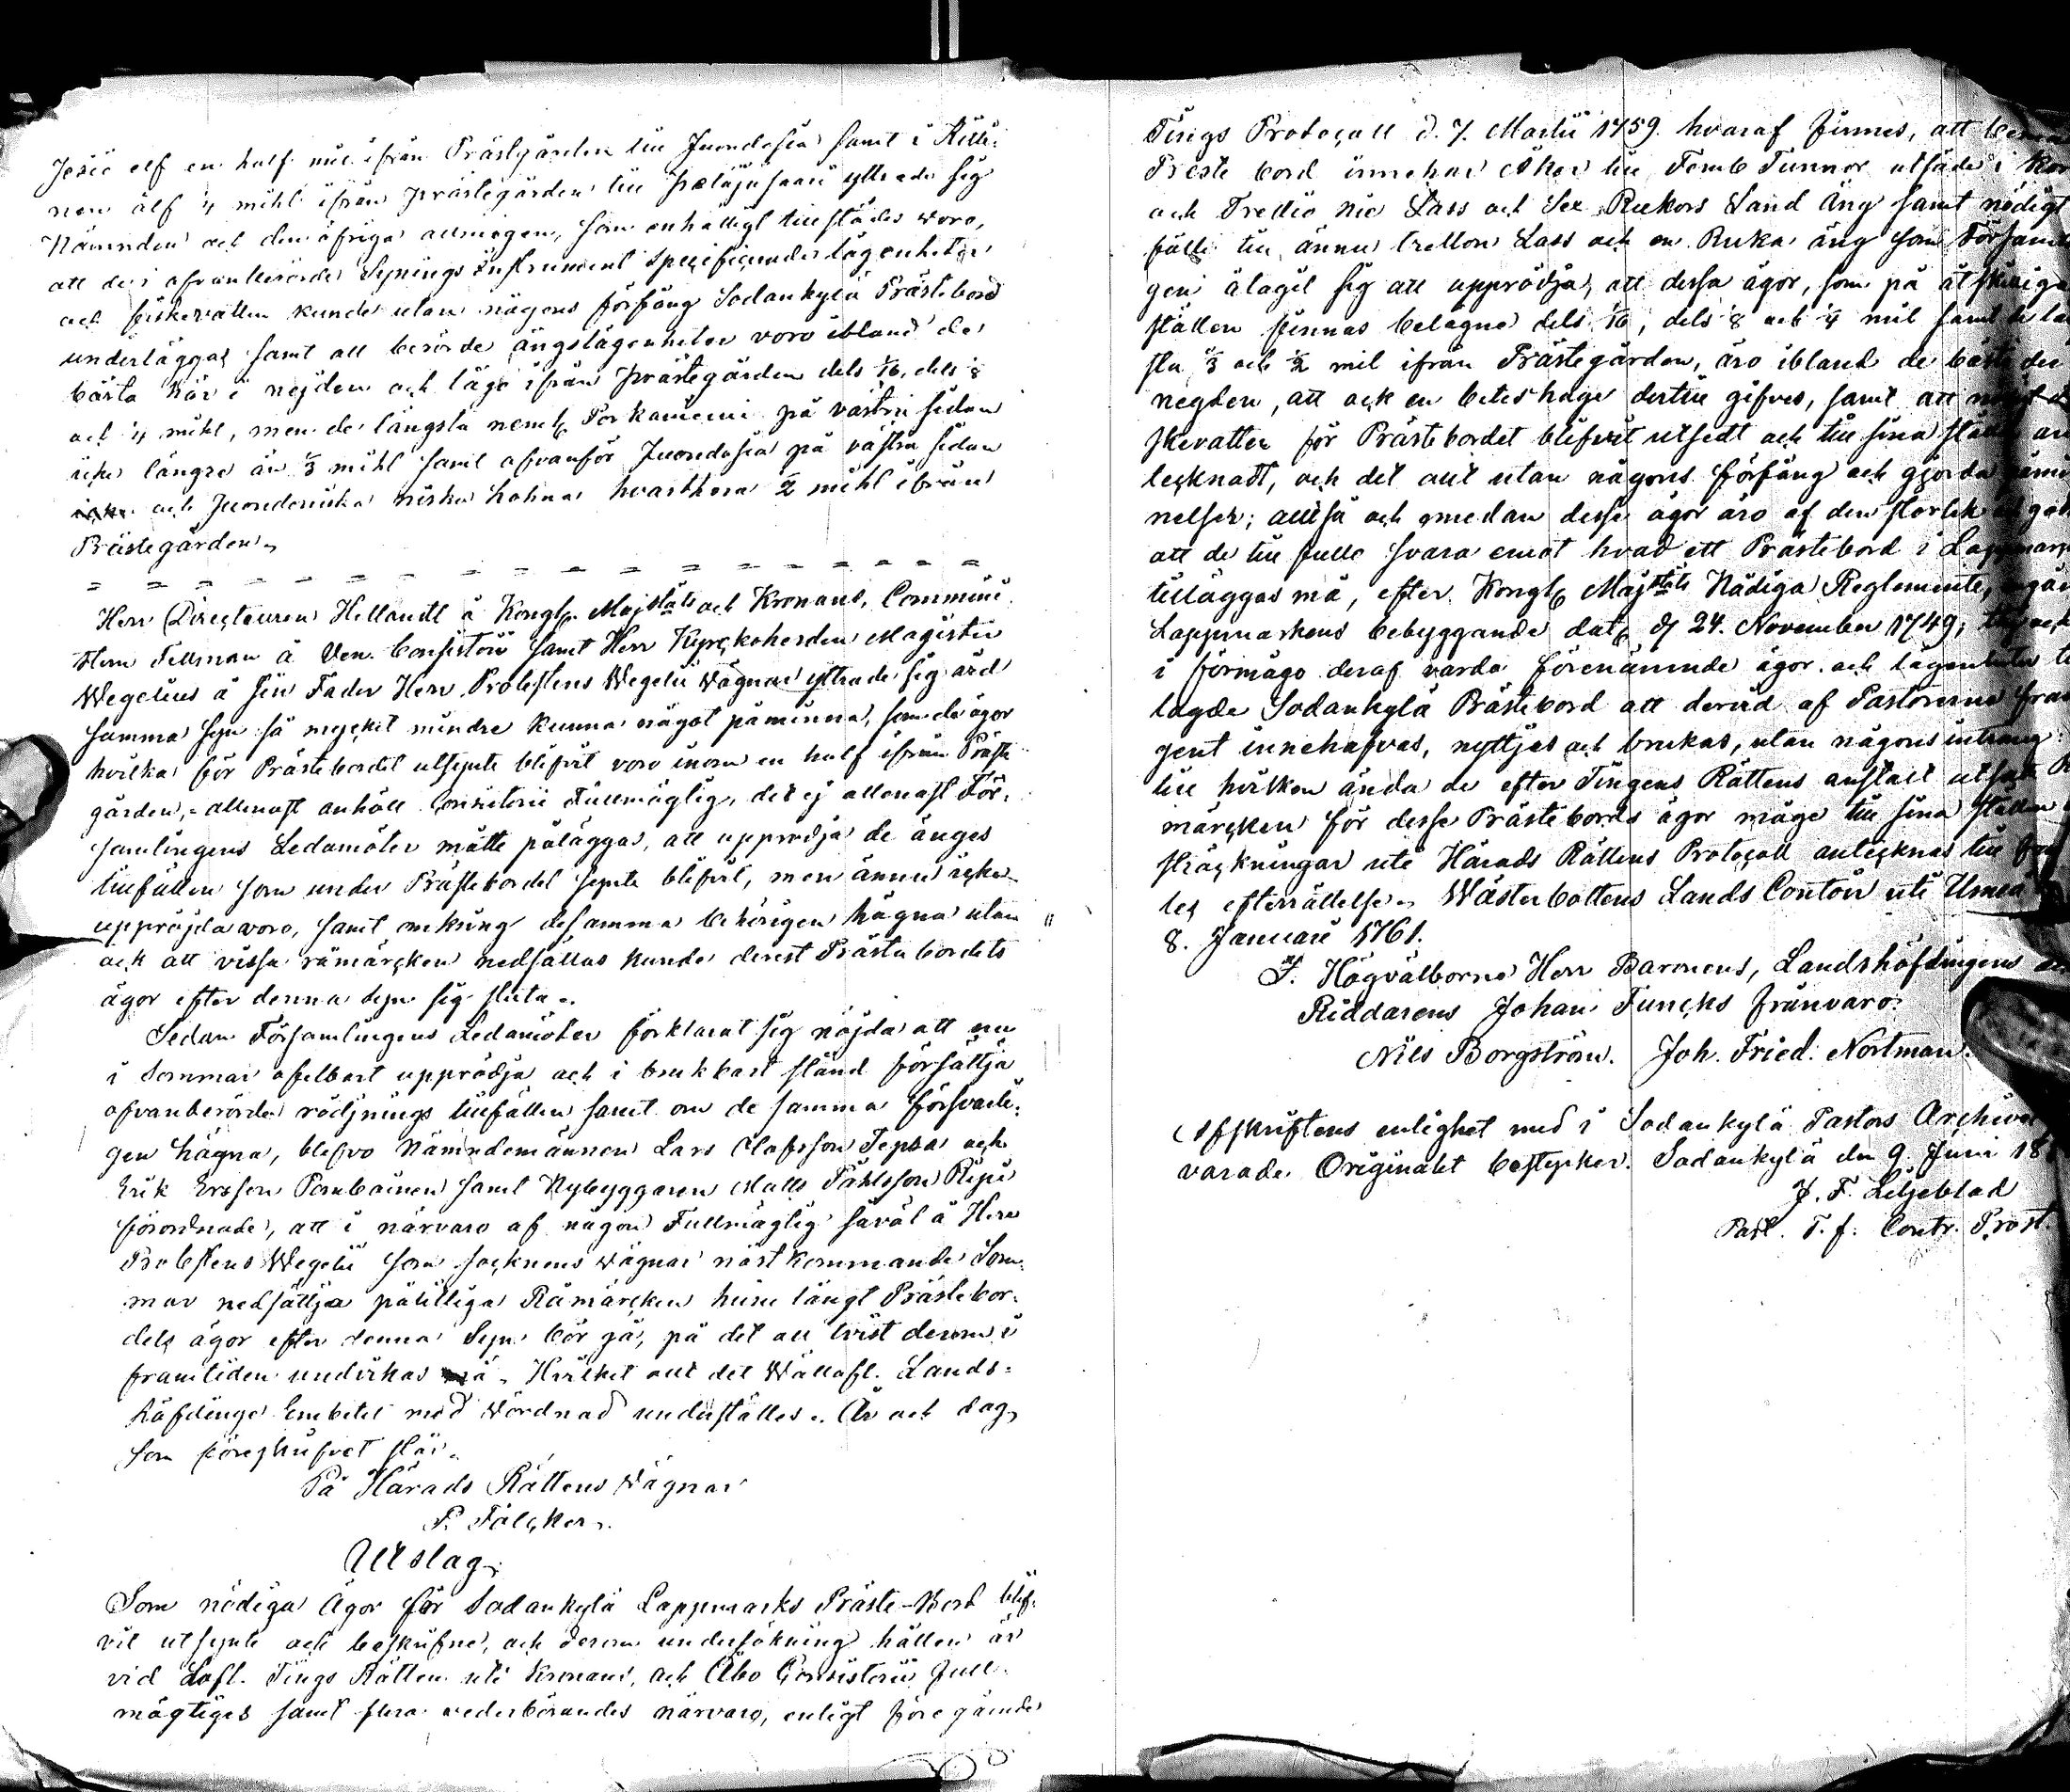 Jesiö elf en half mil ifrån Prästgården till Juondosia samt i Kitti-
nen älf 1/4 mihl ifrån prästegården till yttrade sig
Nämnden och den öfriga allmogen, som enhälligt tillstädes woro,
att de i ofvanberörde Synings Instrument specificerade lägenheter
och fiskevatten kunde utan någons förfång Sodankylä Prästebord
underläggas samt att berörde ängslägenheter voro ibland de
bästa här i nejden och läge ifrån prästegården dels 1/16, dels 1/8
och 1/4 mihl, men de längsta neml. Porkaniemi på västra sidan
icke längre än 1/3 mihl samt ofvanför Juondosia på västra sidan
och Juondoniska niska hohna hvarthera 1/2 mihl ifrån
Prästegården.
Herr Directeuren Hellandt å Kongl. Majstäts och Kronans, Commini
Herr Fellman å Ven. Consistorii samt Herr Kyrckoherden Magister
Wegelius å sin Fader Herr Probstens Wegelii Wägnar yttrade sig wid
samma syn så mycket mindre kunna något påminna, som de ägor
hvilka för Prästebordet utsynte blifvit voro inom en half ifrån Präste
gården, allenast anhöll Consistorii Fullmägtig, det ej allenast För-
samlingens Ledamöter måtte påläggas, att upprödja de änges
tillfällen som under Prästebordet synte blifvit, men ännu icke
uppröjda woro, samt omkring desamma behörigen hägna utan
ock att vissa råmärcken nedsättas kunde derest Prästebordets
ägor efter denna syn sig sluta.
Sedan Församlingens Ledamöter förklarat sig nöjda att nu
i Sommar ofelbart upprödja och i brukbart stånd försättja
ofvanberörde rödjnings tillfällen samt om de samma försvarli-
gen hägna, blefvo Nämndemännen Lars Olofsson Tepsa och
Erik Ersson Pombainen samt Nybyggaren Matts Påhlsson Riipi
förordnade, att i närvaro af någon Fullmägtig såväl å Herr
Probstens Wegelii som socknens Wägnar nästkommande Som-
mar nedsättja pålitliga Råmärcken huru långt Prästebor-
dets ägor efter denna Syn bör gå, på det all tvist derom i
framtiden undvikas må. Hvilket allt det Wällofl. Lands-
höfdinge Embetet med Wördnad underställes. År och dag,
som föreskrifvet står.
På Härads Rättens Wägnar
P. Fälcker.
Utslag.
Som nödiga Ägor för Sodankylä Lappmarks Präste-Bord blif-
vit utsynte och beskrifne, och derom undersökning hållen är
vid Lofl. Tings Rätten uti Kronans, och Åbo Consistorii Full-
mägtiges samt flera vederbörandes närvaro, enligt före gående
Tings Protocoll d. 7. Martii 1759. hvaraf finnes, att
Preste bord innehar Åker till Femb Tunnor utsäde i
och Trettio nio Lass och Sex Rukors Land Äng samt nödigt
fälle till ännu tretton Lass och en Ruka äng som Församl
gen älagit sig att upprödja, att dessa ägor, som på åtskiliga
ställen finnas belägne dels 1/16, dels 1/8 och 1/4 mil samt de län
sta 1/3 och 1/2 mil ifrån Prästegården, äro ibland de bäste der i
negden, att ock en beteshage dertill gifves, samt att
skevatten för Prästebordet blifvit utsedt och till sina ställen an
tecknadt, och det allt utan någons förfång och gjorda påmin
nelser; alltså och emedan desse ägor äro af den storlek
att de till fullo svara emot hvad ett Prästebord i Lappmark
tilläggas må, efter Kongl. Majstäts Nådiga Reglemente,
Lappmarkens bebyggande dat. d. 24. November 1749;
i förmågo deraf varda förenämnde ägor och lägenheter
lagde Sodankylä Prästebord att dervid af Pastorerne fram
gent innehafvas, nyttjas och brukas, utan någons intrång:
till hvilken ända de efter Tingens Rättens anstalt utsatte
märcken för desse Prästebords ägor måge till sina ställen
sträckningar uti Härads Rättens Protocoll antecknas till
tes efterrättelse. Wästerbottens Lands Contoir uti Umeå
8. Januarii 1761.
I. Högvälborne Herr Baronens, Landshöfdingens
Riddarens Johan Funcks frånvaro.
Nils Borgström. Joh. Fried. Nortman.
Afskriftens enlighet med i Sodankylä Pastors Archiv
varade Originalet bestyrker. Sodankylä den 9. Juni 18
J. F. Liljeblad
Past. T. f. Contr. Prost.